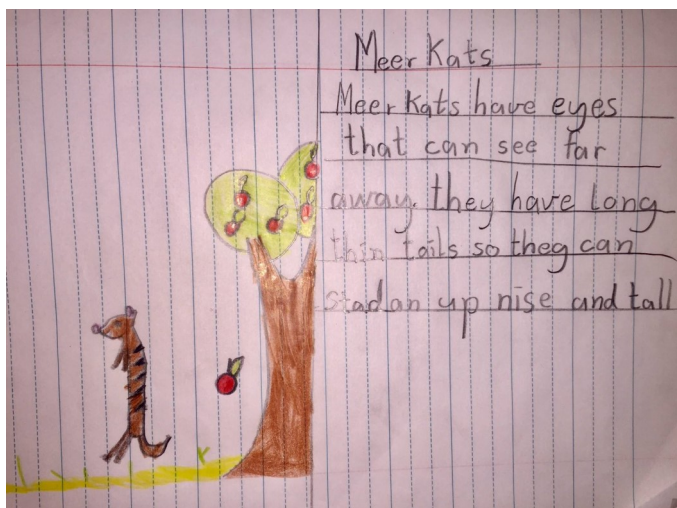 Meer Kats
Meer Kats have eyes
that can see far
away. they have long
thin tails so they can
stadan up nise and tall